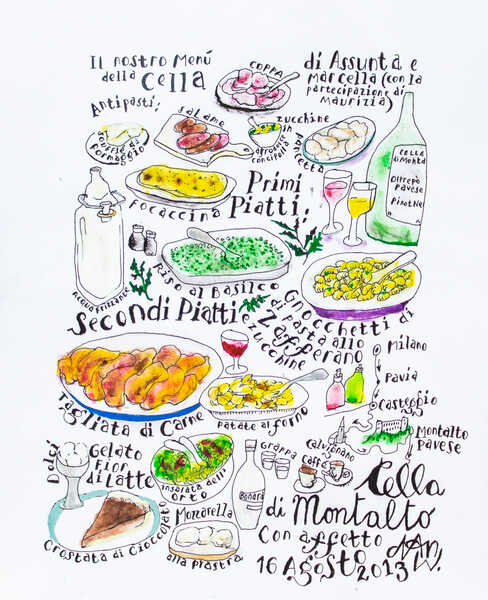 Il nostro Menú
della Cella
di Assunta e
Marcella (con la
partecipazione di
Maurizia)
Antipasti:
coppa
soufflé di
formaggio
salame
zucchine
in
agrodolce
con cipolla
pancetta
focaccina
Primi
Piatti:
Cella
di Montalto
Oltrepò
Pavese
Pinot Nero
Acqua frizzante
Riso al Basilico
Gnocchetti di
pasta allo
Zafferano
e zucchine
Secondi Piatti
Tagliata di Carne
patate al forno
Milano
Pavia
Casteggio
Montalto
Pavese
Dolci
Gelato
Fior
di Latte
insalata dell'
orto
Grappa
Caffè
Calvignano
Crostata di Cioccolato
Mozzarella
alla piastra
Cella
di Montalto
Con affetto
16 Agosto 2013